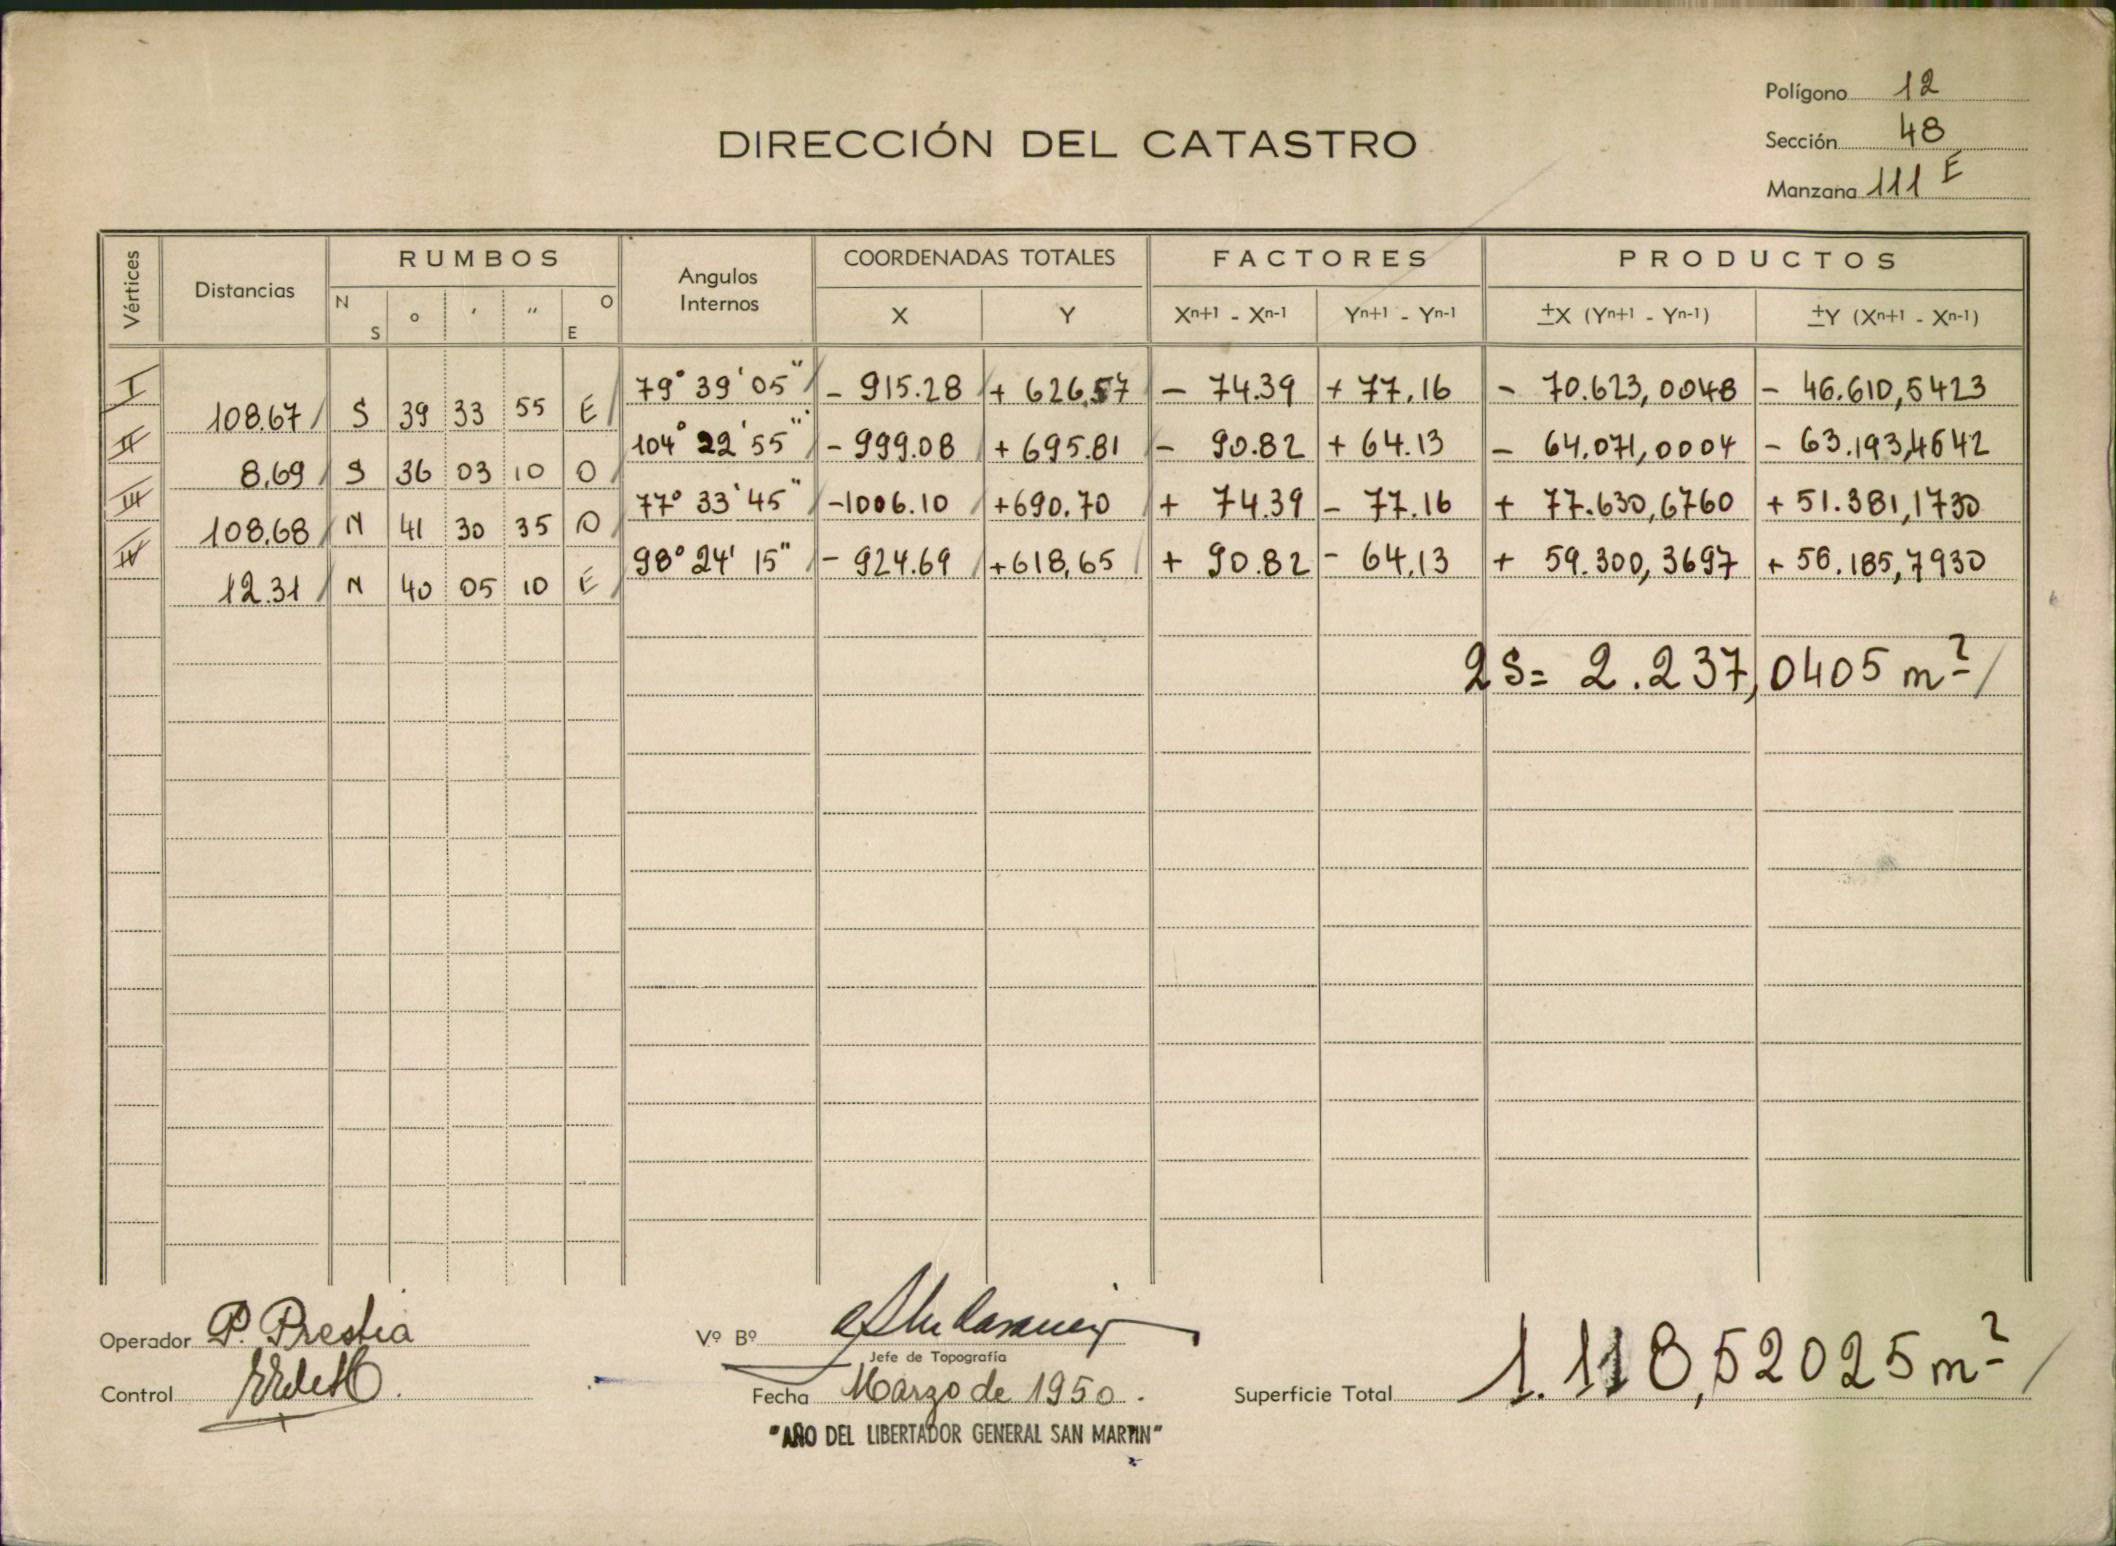 Polígono 12
DIRECCIÓN DEL CATASTRO
Sección 48
Manzana 111 E
Vértices Distancias RUMBOS Angulos Internos COORDENADAS TOTALES FACTORES PRODUCTOS
N S ° ′ ″ O E X Y Xⁿ⁺¹ - Xⁿ⁻¹ Yⁿ⁺¹ - Yⁿ⁻¹ ±X (Yⁿ⁺¹ - Yⁿ⁻¹) ±Y (Xⁿ⁺¹ - Xⁿ⁻¹)
I 79° 39' 05" - 915.28 + 626.57 - 74.39 + 77.16 - 70.623,0048 - 46.610,5423
108.67 S 39 33 55 E
II 104° 22' 55" - 999.08 + 695.81 - 90.82 + 64.13 - 64.071,0004 - 63.193,4642
8.69 S 36 03 10 O
III 77° 33' 45" -1006.10 +690.70 + 74.39 - 77.16 + 77.630,6760 + 51.381,1730
108.68 N 41 30 35 O
IV 98° 24' 15" - 924.69 +618,65 + 90.82 - 64,13 + 59.300,3697 + 56.185,7930
12.31 N 40 05 10 E
2S= 2.237,0405 m²
Operador P. Prestia
Vº Bº
Jefe de Topografía
Control
Fecha Marzo de 1950.
Superficie Total 1.118,52025 m²
"AÑO DEL LIBERTADOR GENERAL SAN MARTIN"